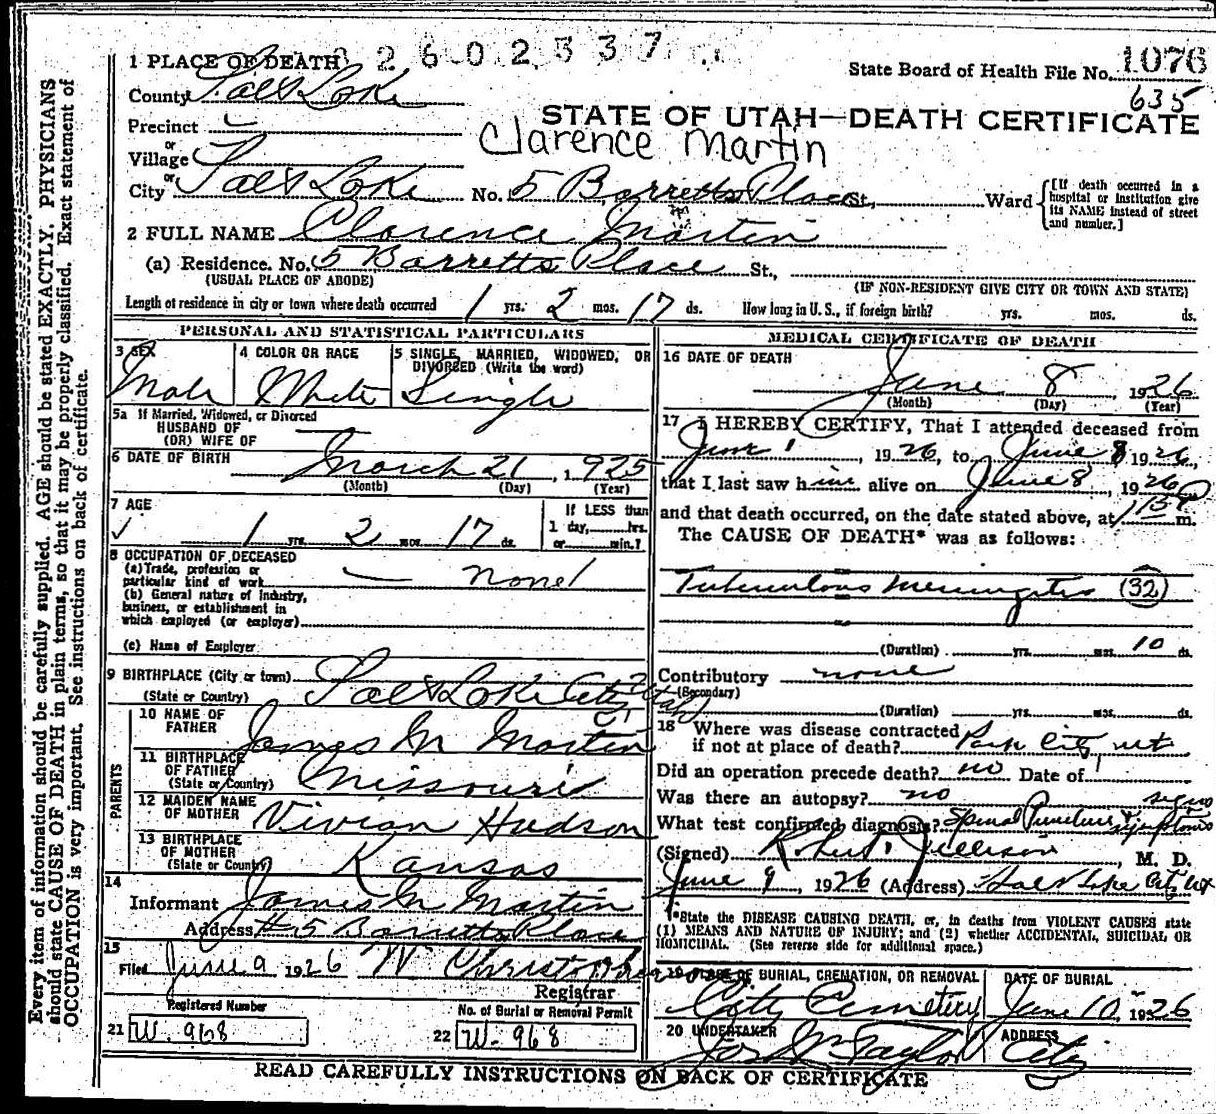 1 PLACE OF DEATH 2602337
State Board of Health File No. 1076
635
County Salt Lake
STATE OF UTAH—DEATH CERTIFICATE
Precinct
Clarence Martin
or
Village
or
City Salt Lake No. 5 Barretts Place St., Ward
[If death occurred in a hospital or institution give its NAME instead of street and number.]
2 FULL NAME Clarence Martin
(a) Residence. No. 5 Barretts Place St.,
(USUAL PLACE OF ABODE) (IF NON-RESIDENT GIVE CITY OR TOWN AND STATE)
Length of residence in city or town where death occurred 1 yrs. 2 mos. 17 ds. How long in U. S., if foreign birth? yrs. mos. ds.
PERSONAL AND STATISTICAL PARTICULARS
3 SEX
Male
4 COLOR OR RACE
White
5 SINGLE, MARRIED, WIDOWED, OR DIVORCED (Write the word)
Single
5a If Married, Widowed, or Divorced
HUSBAND OF
(OR) WIFE OF
6 DATE OF BIRTH March 21, 1925
(Month) (Day) (Year)
7 AGE
1 yrs. 2 mos. 17 ds.
If LESS than
1 day, hrs.
or min.?
8 OCCUPATION OF DECEASED
(a) Trade, profession or
particular kind of work none
(b) General nature of Industry,
business, or establishment in
which employed (or employer)
(c) Name of Employer
9 BIRTHPLACE (City or town) Salt Lake City Utah
(State or Country)
PARENTS
10 NAME OF
FATHER James M Martin
11 BIRTHPLACE
OF FATHER Missouri
(State or Country)
12 MAIDEN NAME
OF MOTHER Vivian Hudson
13 BIRTHPLACE
OF MOTHER Kansas
(State or Country)
14
Informant James M Martin
Address # 5 Barretts Place
15
Filed June 9 1926 W Christopherson
Registrar
Registered Number
21 W. 968
No. of Burial or Removal Permit
22 W- 968
MEDICAL CERTIFICATE OF DEATH
16 DATE OF DEATH
June 8, 1926
(Month) (Day) (Year)
17 I HEREBY CERTIFY, That I attended deceased from
June 1, 1926, to June 8 1926,
that I last saw him alive on June 8, 1926
and that death occurred, on the date stated above, at m.
The CAUSE OF DEATH* was as follows:
Tuberculous Meningitis (32)
(Duration) yrs. mos. 10 ds.
Contributory none
(Secondary)
(Duration) yrs. mos. ds.
18 Where was disease contracted
if not at place of death? Park City Ut
Did an operation precede death? no Date of
Was there an autopsy? no
What test confirmed diagnosis? Spinal Puncture & signs symptoms
(Signed) Robert, M. D.
June 9, 1926 (Address) Salt Lake City Ut
*State the DISEASE CAUSING DEATH, or, in deaths from VIOLENT CAUSES state
(1) MEANS AND NATURE OF INJURY; and (2) whether ACCIDENTAL, SUICIDAL OR
HOMICIDAL. (See reverse side for additional space.)
19 PLACE OF BURIAL, CREMATION, OR REMOVAL
City Cemetery
DATE OF BURIAL
June 10, 1926
20 UNDERTAKER
Jos Wm Taylor
ADDRESS
City
READ CAREFULLY INSTRUCTIONS ON BACK OF CERTIFICATE
Every item of information should be carefully supplied. AGE should be stated EXACTLY. PHYSICIANS
should state CAUSE OF DEATH in plain terms, so that it may be properly classified. Exact statement of
OCCUPATION is very important. See instructions on back of certificate.